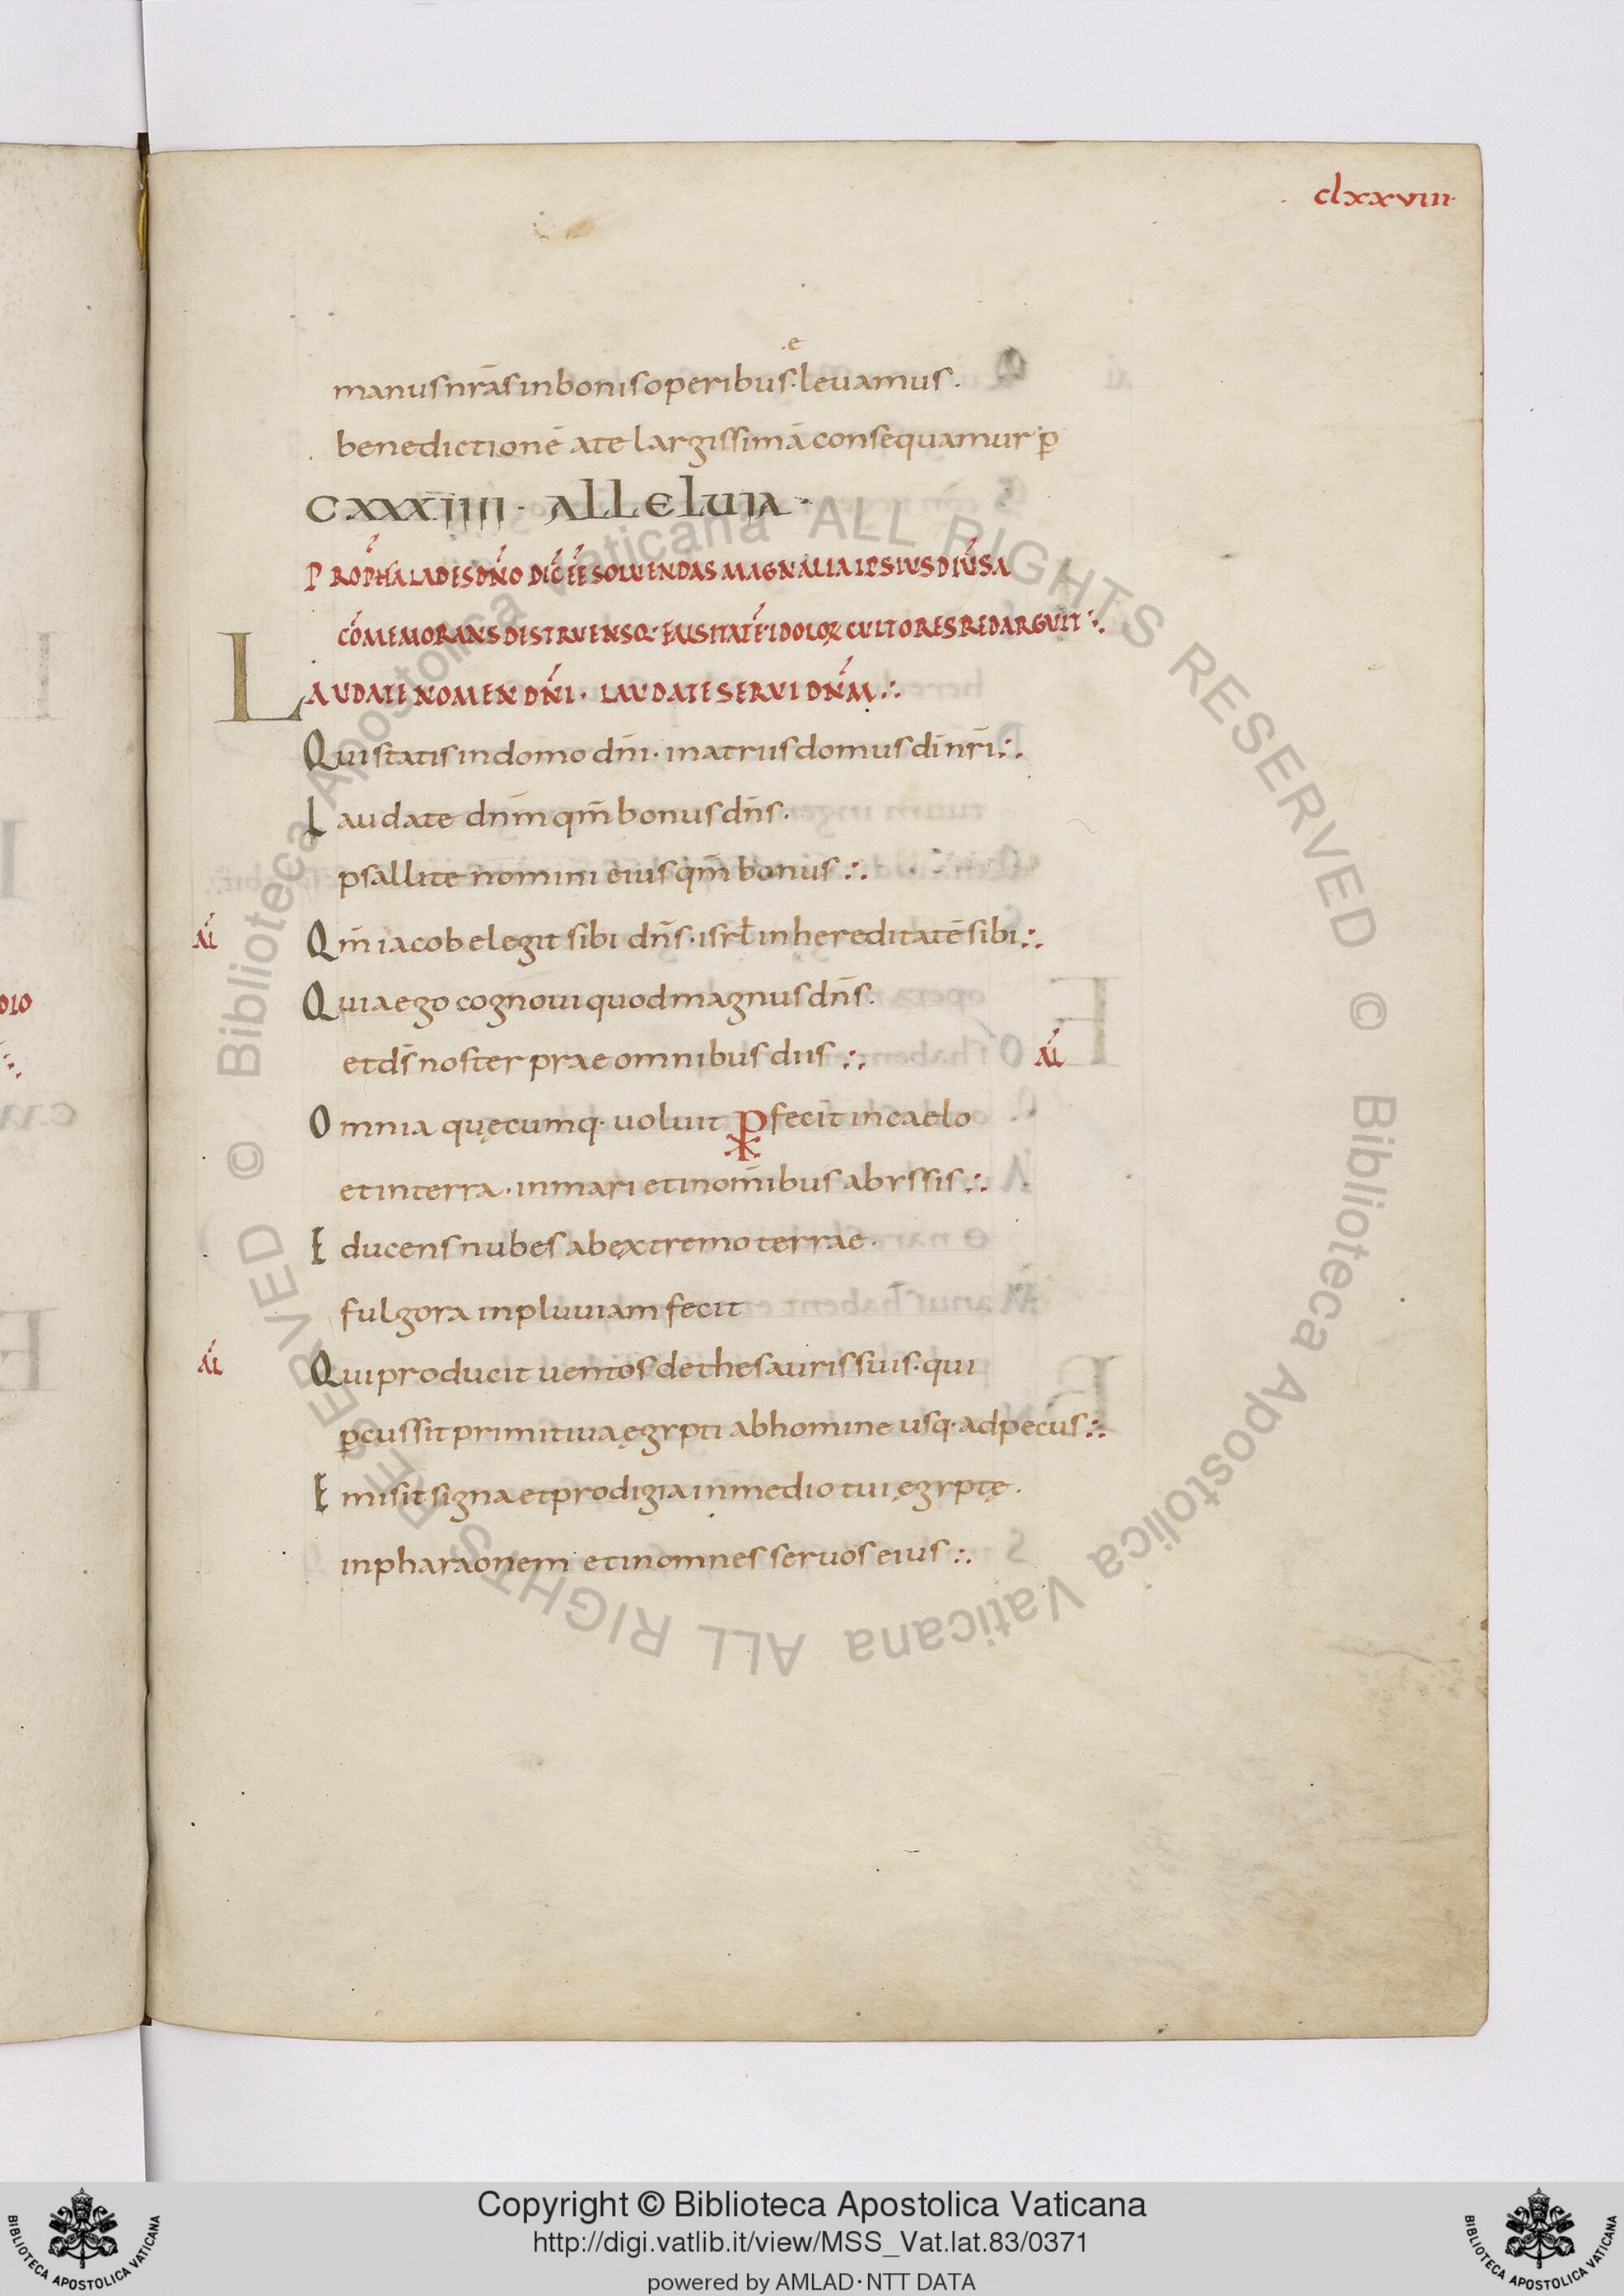 clxxviii·
manus nr̄as in bonis operibus· leuamus.
e
benedictionē a te largissimā consequamur p̄
CXXXIIII · ALLELUIA ·
PROPHA LADES DN̄O DIC̄ EE SOLUENDAS MAGNALIA IPSIUS DIŪSA
CŌMEMORANS DESTRUENSQ· EIUSITATĒ IDOLOꝜ CULTORES REDARGUIT ∴
LAUDATE NOMEN DN̄I · LAUDATE SERUI DN̄M ∴
Qui statis in domo dn̄i · in atriis domus dī nr̄i ∴
Laudate dn̄m qm̄ bonus dn̄s ·
psallite nomini eius qm̄ bonus ∴
AĪ
Qm̄ iacob elegit sibi dn̄s · isrł in hereditatē sibi ∴
Quia ego cognoui quod magnus dn̄s.
et ds̄ noster prae omnibus diis ∴
AĪ
Omnia quęcumq· uoluit ⳩ fecit in caelo
et in terra · in mari et in om̄ibus abyssis ∴
Educens nubes ab extremo terrae ·
fulgora in pluuiam fecit
AĪ
Qui producit uentos de thesauris suis · qui
ꝑcussit primitiua ęgypti ab homine usq· ad pecus ∴
Emisit signa et prodigia in medio tui ęgyptę ·
in pharaonem et in omnes seruos eius ∴
© Biblioteca Apostolica Vaticana ALL RIGHTS RESERVED © Biblioteca Apostolica Vaticana ALL RIGHTS RESERVED
Copyright © Biblioteca Apostolica Vaticana
http://digi.vatlib.it/view/MSS_Vat.lat.83/0371
powered by AMLAD·NTT DATA
BIBLIOTECA APOSTOLICA VATICANA
BIBLIOTECA APOSTOLICA VATICANA